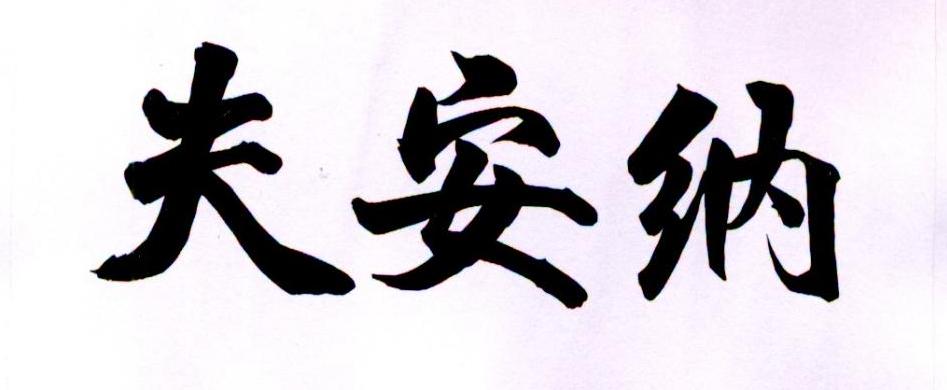 夫安纳